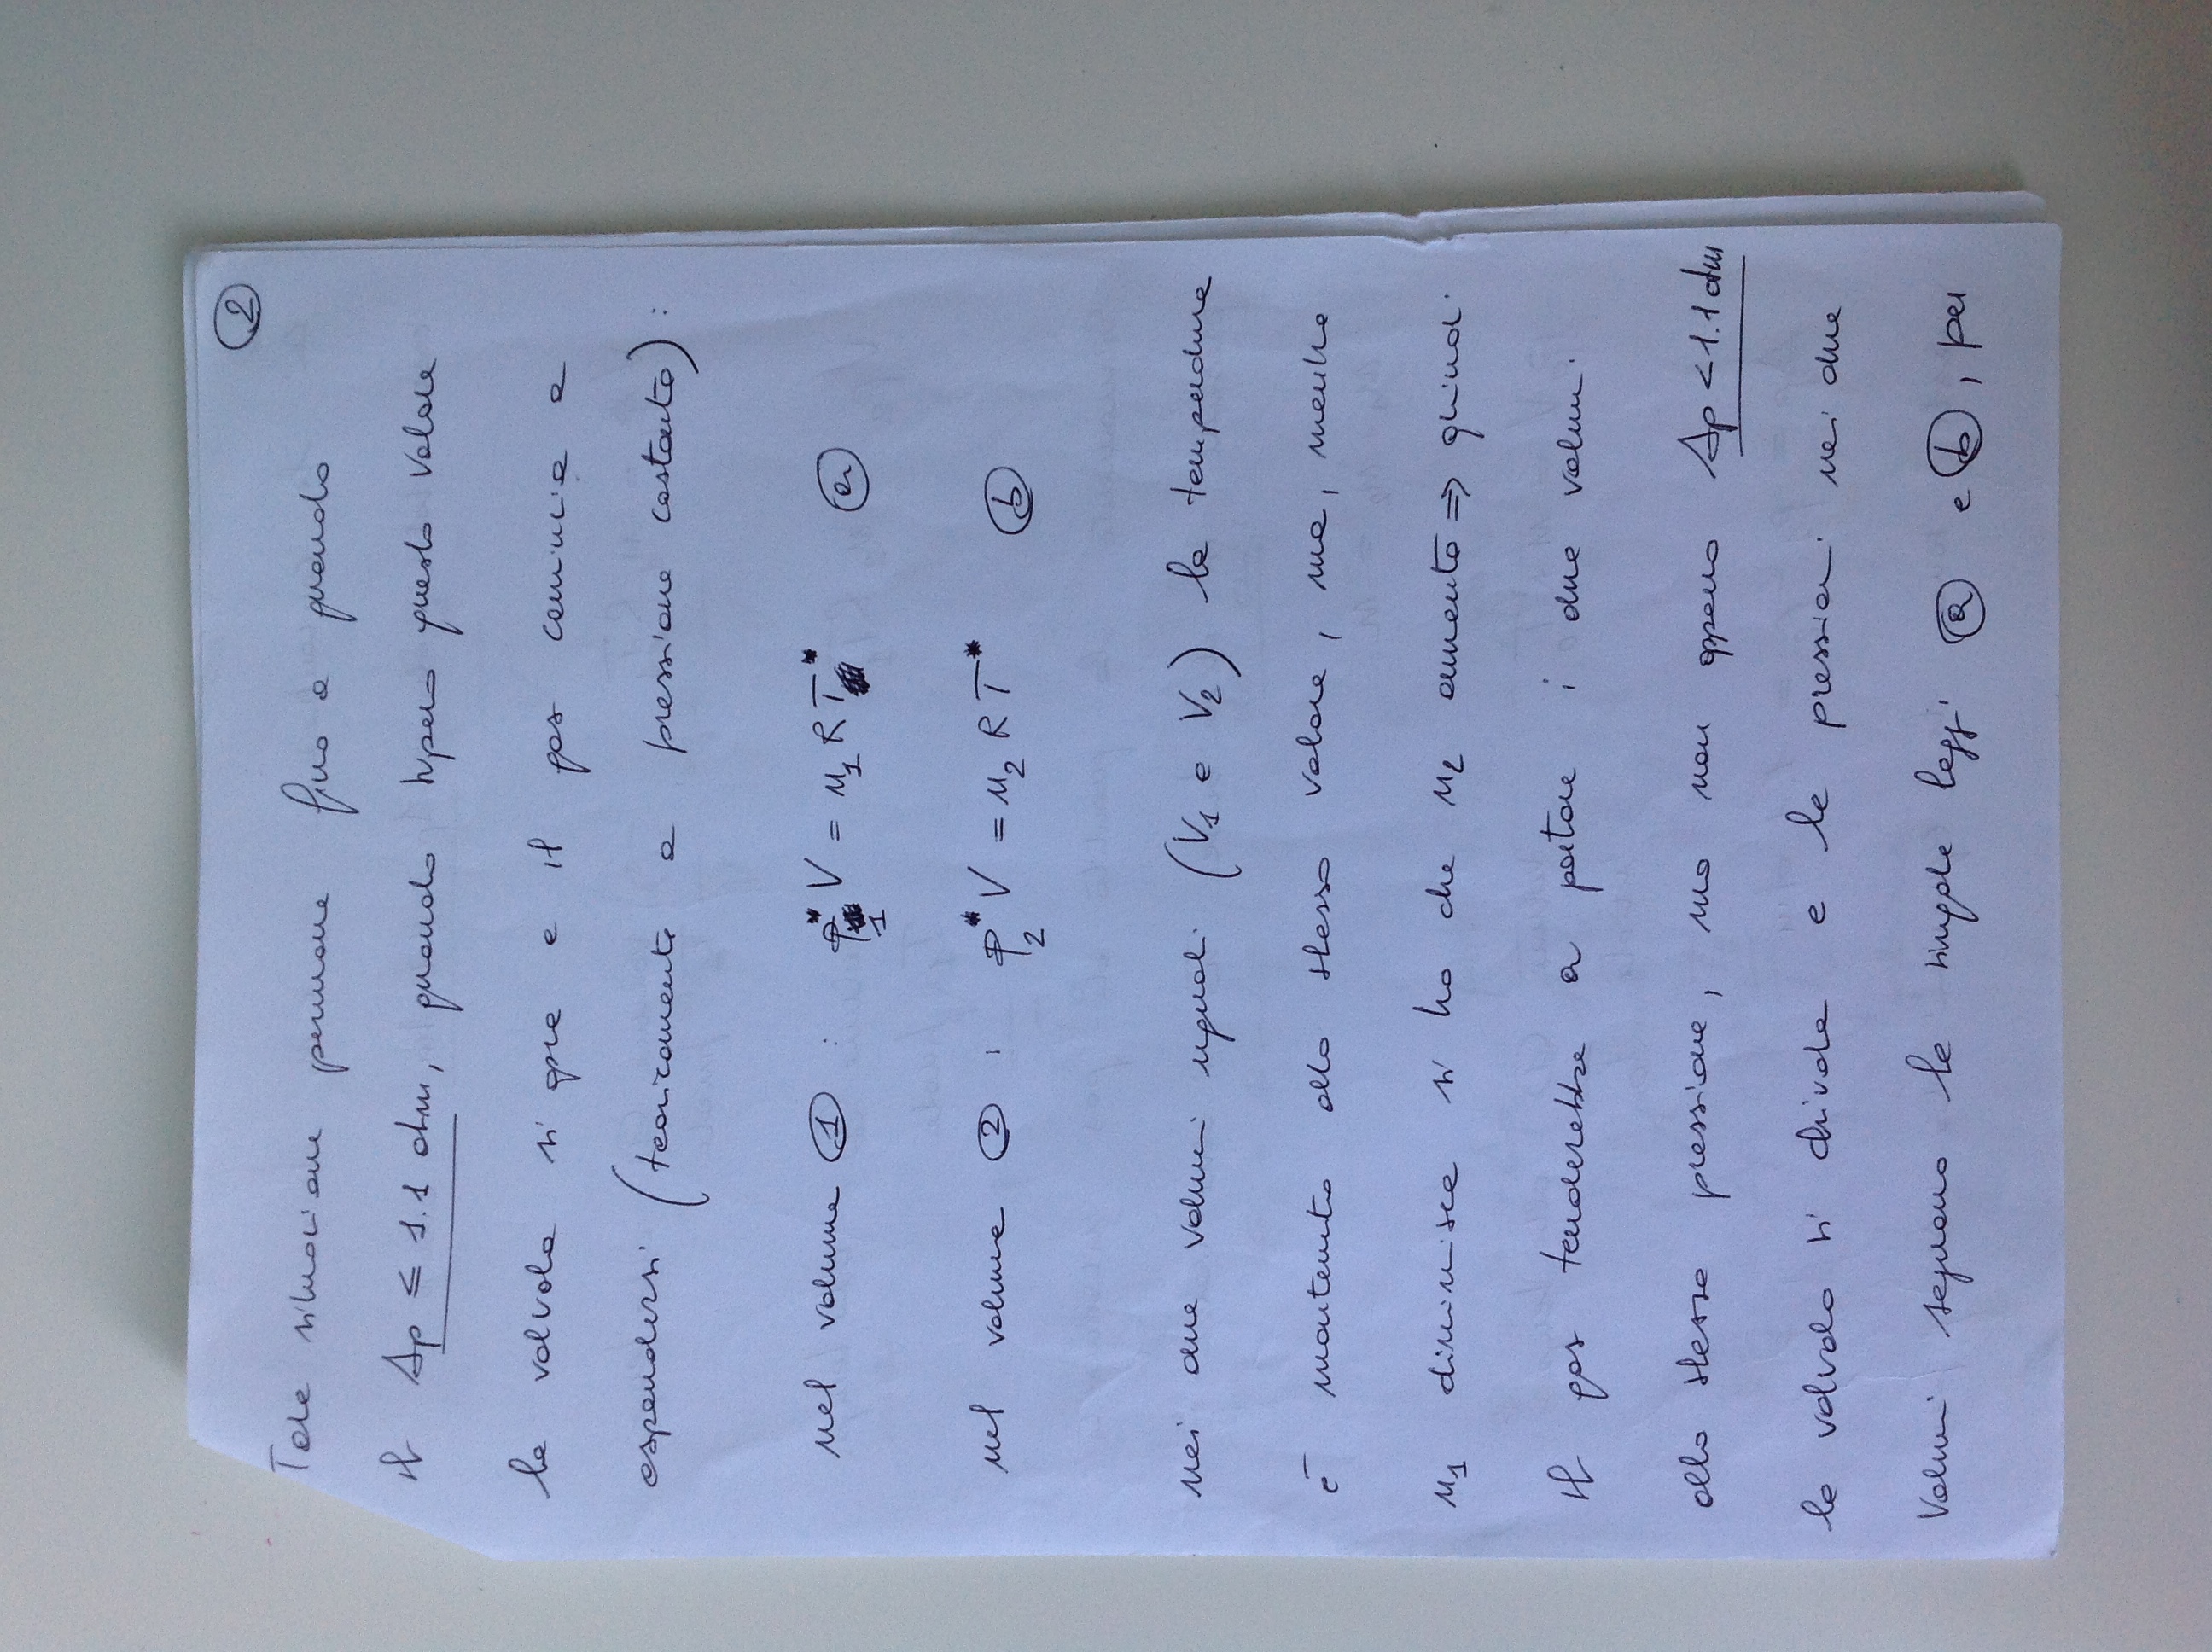 2
Tale situazione permane fino a quando
il Δp ≤ 1.1 atm, quando supero questo valore
la valvola si apre e il gas comincia a
espandersi (teoricamente a pressione costante):
nel volume 1 : p₁* V = n₁ R T* a
nel volume 2 : p₂* V = n₂ R T* b
nei due volumi uguali (V₁ e V₂) la temperatura
è mantenuta allo stesso valore, ma, mentre
n₁ diminuisce si ha che n₂ aumenta ⇒ quindi
il gas tenderebbe a portare i due volumi
alla stessa pressione, ma non appena Δp < 1.1 atm
la valvola si chiude e le pressioni nei due
volumi seguono le singole leggi a e b, per